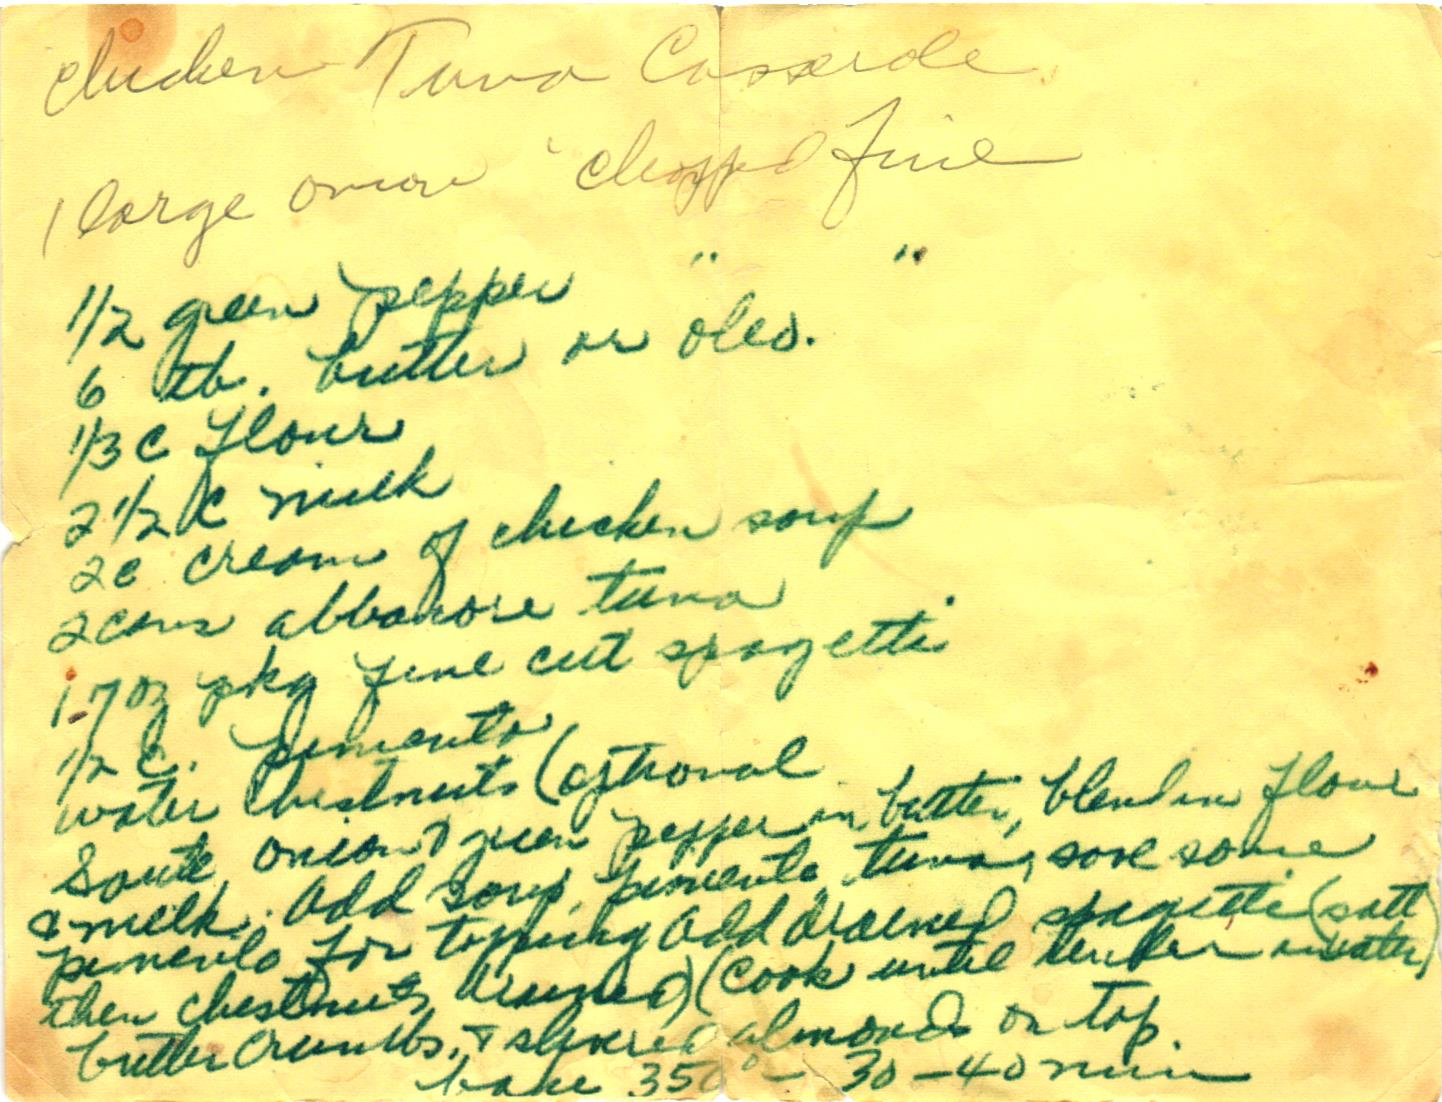 Chicken Tuna Casserole
1 large onion chopped fine
1/2 green pepper " "
6 tb. butter or oleo.
1/3 c flour
2 1/2 c milk
2c cream of chicken soup
2 cans albacore tuna
1-7oz pkg fine cut spagetti
1/2 c. pimento
water chestnuts (optional
Saute onion & green pepper in butter, blend in flour
& milk. Add soup, pimento, tuna, save some
pimento for topping add drained spagetti (salt
then chestnuts, drained) (cook until tender in water)
butter crumbs, & slivered almonds on top.
bake 350° - 30-40 min